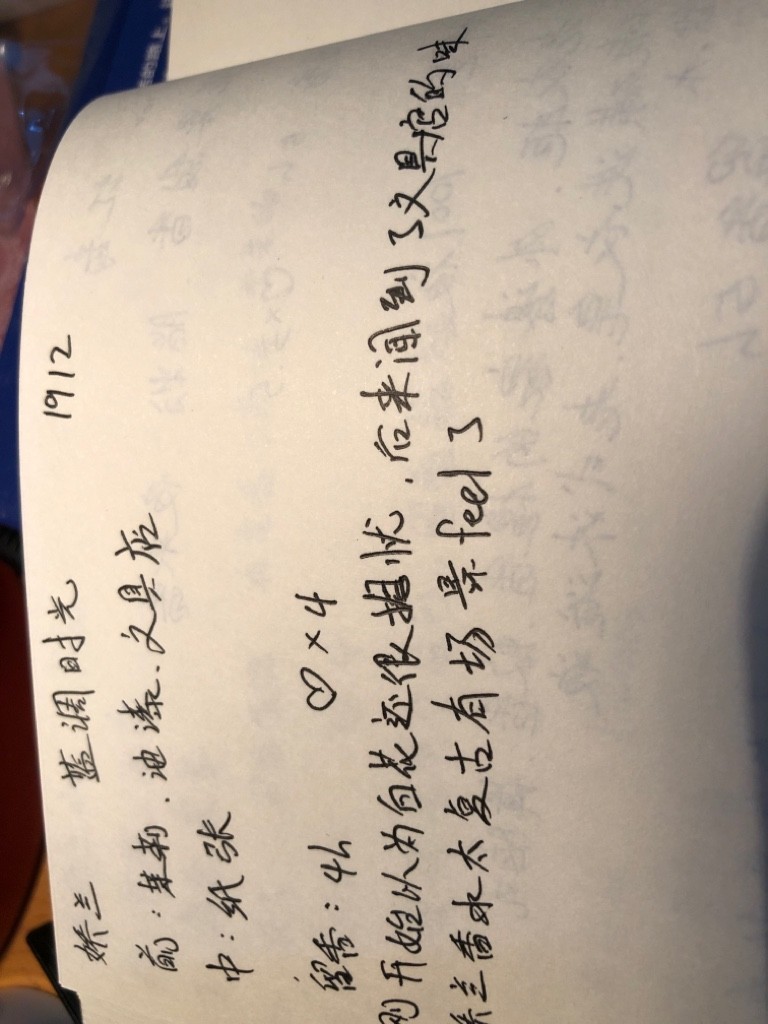 娇兰 蓝调时光 1912
前：茉莉、油漆、文具店
中：纸张
留香：4h ♡×4
刚开始以为白花还很担忧，后来闻到了文具店的味
娇兰香水太复古有场景feel了